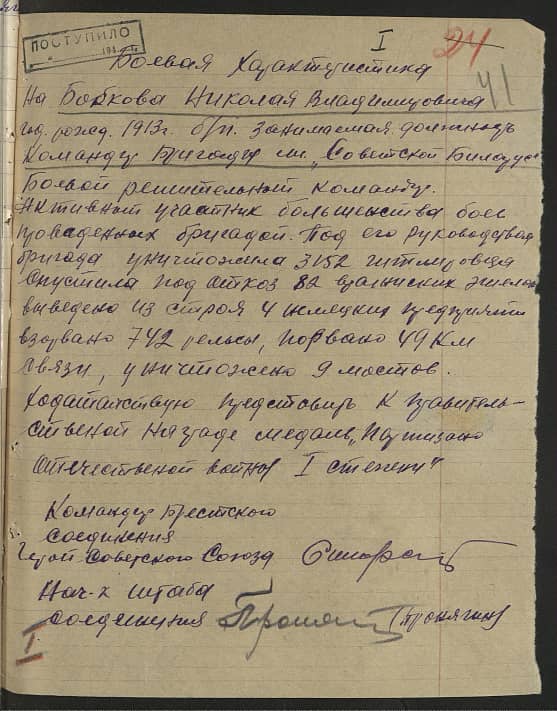 ПОСТУПИЛО
194
I
24
41
Боевая характеристика
На Бобкова Николая Владимировича
год. рожд. 1913г. б/п. Занимаемая должность
Командир бригады им. „Советской Белорус
Боевой решительный командир.
Активный участник большенства боев
проведенных бригадой. Под его руководством
бригада уничтожила 3152 гитлеровца
Спустила под откоз 82 вражиских эшелон
выведено из строя 4 немецких предприяти
взорвано 742 рельсы, порвано 49 км
связи, уничтожено 9 мостов.
Ходатайствую представить к правитель-
ственой награде медаль „Партизано
Отечественой войны I степени"
Командир Брестского
соединения
Герой Советского Союза
Нач-к штаба
соединения (Пронягин)
I